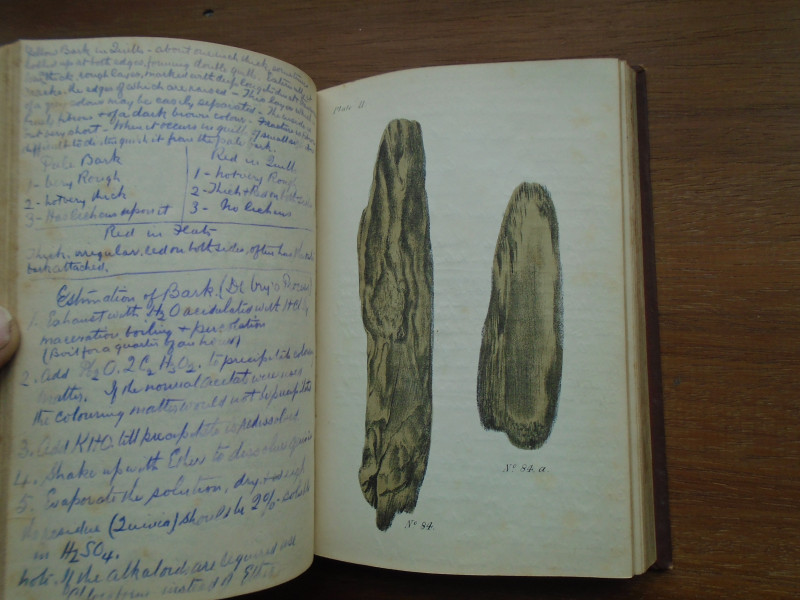 Yellow Bark in Quills - about one inch thick, sometimes
rolled up at both edges, forming double quill.
thick, rough layer, marked with deep longitudinal
cracks, the edges of which are raised - This layer which is
of a grey colour may be easily separated - The
of a dark brown colour - Fracture
very short - When it occurs in quills of small size
difficult to distinguish it from the pale bark.
Pale Bark
1- Very Rough
2- not very thick
3- Has lichens upon it
Red in Quills
1- not very Rough
2- Thick & Red on both sides
3- No lichens
Red in Flats
Thick, irregular, red on both sides, often has
bark attached.
Estimation of Bark. (De Vry's Process)
1. Exhaust with H2O acidulated with HCl by
maceration boiling & percolation
(Boil for a quarter of an hour)
2. Add O. 2C2H3O2. to precipitate colouring
matter. If the normal acetate were used
the colouring matter would not be precipitated
3. Add KHO till precipitate is redissolved
4. Shake up with Ether to dissolve
5. Evaporate the solution, dry, & weigh
residue (Quinia) should be 2%. soluble
in H2SO4.
Note. If the alkaloids are required use
Chloroform instead of Ether
Plate II
No. 84.
No. 84. a.